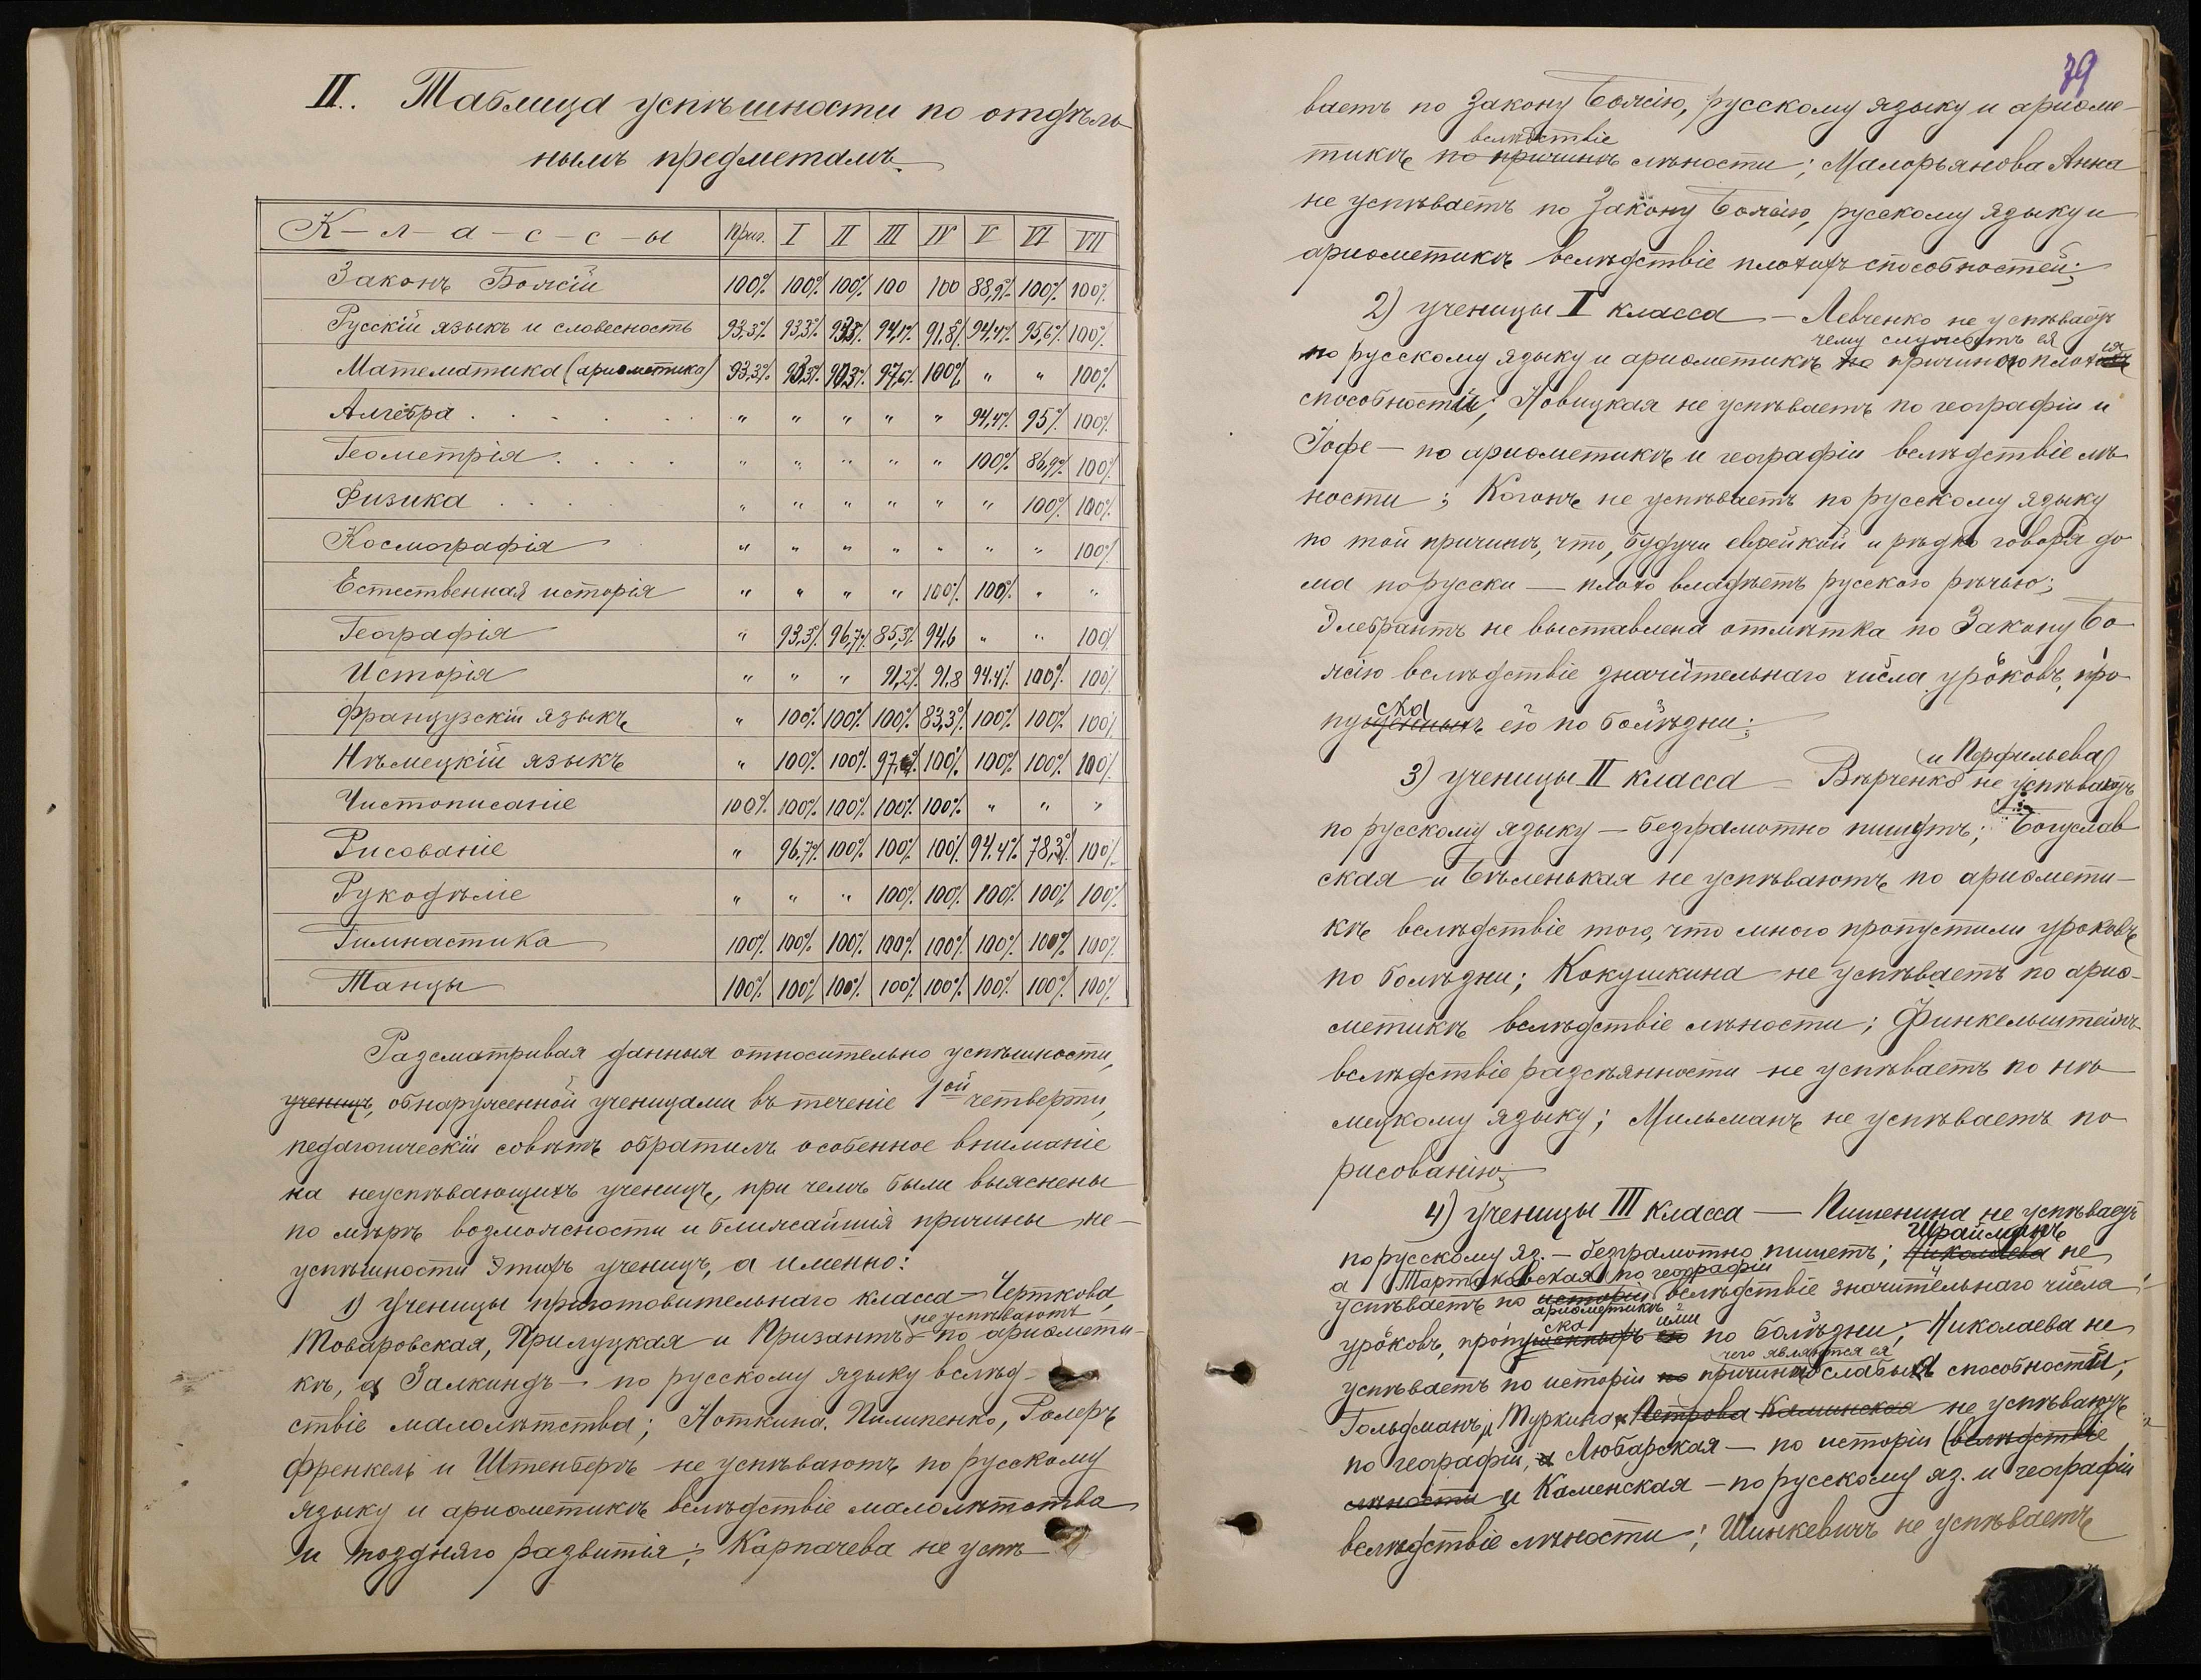 II. Таблица успѣшности по отдѣль-
нымъ предметамъ.
К-л-а-с-с-ы Приг. I II III IV V VI VII
Законъ Божій 100% 100% 100% 100 100 88,9% 100% 100%
Русскій языкъ и словесность 93,3% 93,3% 93,3% 94,1% 91,8% 94,4% 95,6% 100%
Математика (ариѳметика) 93,3% 90,3% 90,3% 97,6% 100% " " 100%
Алгебра . . . . . " " " " " 94,4% 95% 100%
Геометрія . . . . " " " " " 100% 86,9% 100%
Физика . . . . " " " " " " 100% 100%
Космографія " " " " " " " 100%
Естественная исторія " " " " 100% 100% " "
Географія " 93,3% 96,7% 85,3% 94,6 " " 100%
Исторія " " " 91,2% 91,8 94,4% 100% 100%
Французскій языкъ " 100% 100% 100% 83,3% 100% 100% 100%
Нѣмецкій языкъ " 100% 100% 97,% 100% 100% 100% 100%
Чистописаніе 100% 100% 100% 100% 100% " " "
Рисованіе " 96,7% 100% 100% 100% 94,4% 78,3% 100%
Рукодѣліе " " " 100% 100% 100% 100% 100%
Гимнастика 100% 100% 100% 100% 100% 100% 100% 100%
Танцы 100% 100% 100% 100% 100% 100% 100% 100%
Разсматривая данныя относительно успѣшности,
ученицъ, обнаруженной ученицами въ теченіе 1ой четверти,
педагогическій совѣтъ обратилъ особенное вниманіе
на неуспѣвающихъ ученицъ, при чемъ были выяснены
по мѣрѣ возможности и ближайшія причины не-
успѣшности этихъ ученицъ, а именно:
1) Ученицы приготовительнаго класса – Черткова,
не успѣваютъ
Товаровская, Прилуцкая и Призантъ – по ариѳмети-
кѣ, а Залкиндъ – по русскому языку вслѣд-
ствіе малолѣтства; Ноткина, Пилипенко, Ролеръ
Френкель и Штенберъ не успѣваютъ по русскому
языку и ариѳметикѣ вслѣдствіе малолѣтства
и поздняго развитія; Карпачева не успѣ-
79
ваетъ по Закону Божію, русскому языку и ариѳме-
вслѣдствіе
тикѣ по причинѣ лѣности; Малорьянова Анна
не успѣваетъ по Закону Божію, русскому языку и
ариѳметикѣ вслѣдствіе плохихъ способностей;
2) ученицы I класса – Левченко не успѣваетъ
чему служатъ ея
по русскому языку и ариѳметикѣ по причиною плохія
способности; Новицкая не успѣваетъ по географіи и
Іофе – по ариѳметикѣ и географіи вслѣдствіе лѣ-
ности; Коганъ не успѣваетъ по русскому языку
по той причинѣ, что, будучи еврейкой и рѣдко говоря до-
ма порусски – плохо владѣетъ русскою рѣчью;
Элебрантъ не выставлена отмѣтка по Закону Бо-
жію вслѣдствіе значительнаго числа уроковъ, про-
ска
пущенныхъ ею по болѣзни;
и Перфильева
3) ученицы II класса – Вѣрченко не успѣваютъ
по русскому языку – безграмотно пишутъ; Богуслав-
ская и Бѣленькая не успѣваютъ по ариѳмети-
кѣ вслѣдствіе того, что много пропустили уроковъ
по болѣзни; Кокушкина не успѣваетъ по ариѳ-
метикѣ вслѣдствіе лѣности; Финкельштейнъ
вслѣдствіе разсѣянности не успѣваетъ по нѣ-
мецкому языку; Мильманъ не успѣваетъ по
рисованію;
4) ученицы III класса – Пишенина не успѣваетъ
Шрайманъ
по русскому яз. – безграмотно пишетъ; Николаева не
а Тартаковская по географіи
успѣваетъ по исторіи вслѣдствіе значительнаго числа
ариѳметикѣ
ска ими
уроковъ, пропущенныхъ ею по болѣзни; Николаева не
чего являются ея
успѣваетъ по исторіи по причиною слабыя способности;
Гольдманъ, и Туркина, Петрова Каминская не успѣваютъ
по географіи, а Любарская – по исторіи (вслѣдствіе
лѣности и Каменская – по русскому яз. и географіи
вслѣдствіе лѣности; Шинкевичъ не успѣваетъ